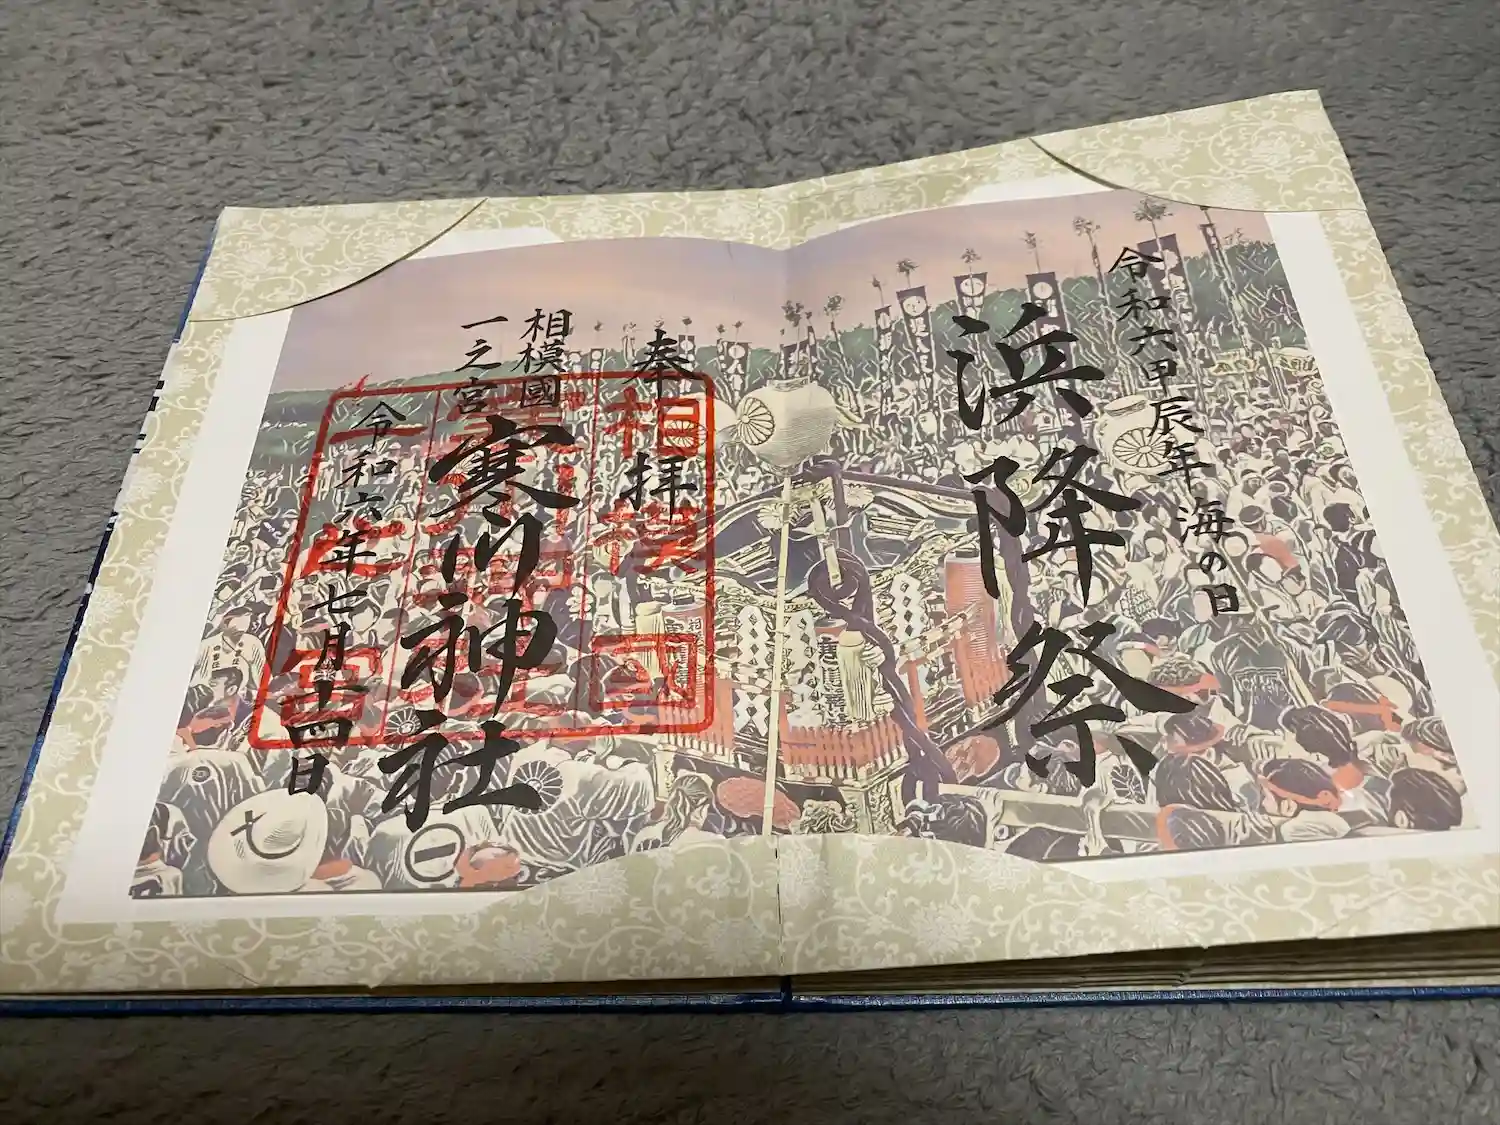 令和六甲辰年 海の日
浜降祭
奉拝
相模國
一之宮
寒川神社
令和六年七月十四日
相模國
寒川神社
一之宮